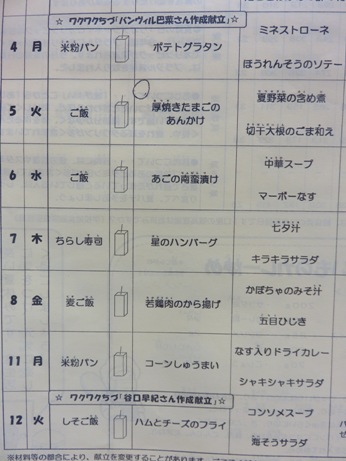 ☆ ワクワクちづ「バンヴィル巴菜さん作成献立」☆
4 月 米粉パン ポテトグラタン ミネストローネ
ほうれんそうのソテー
5 火 ご飯 厚焼きたまごの
あんかけ 夏野菜の含め煮
切干大根のごま和え
6 水 ご飯 あごの南蛮漬け 中華スープ
マーボーなす
7 木 ちらし寿司 星のハンバーグ 七夕汁
キラキラサラダ
8 金 麦ご飯 若鶏肉のから揚げ かぼちゃのみそ汁
五目ひじき
11 月 米粉パン コーンしゅうまい なす入りドライカレー
シャキシャキサラダ
☆ ワクワクちづ「谷口早紀さん作成献立」☆
12 火 しそご飯 ハムとチーズのフライ コンソメスープ
海そうサラダ
※材料等の都合により、献立を変更することがあります。